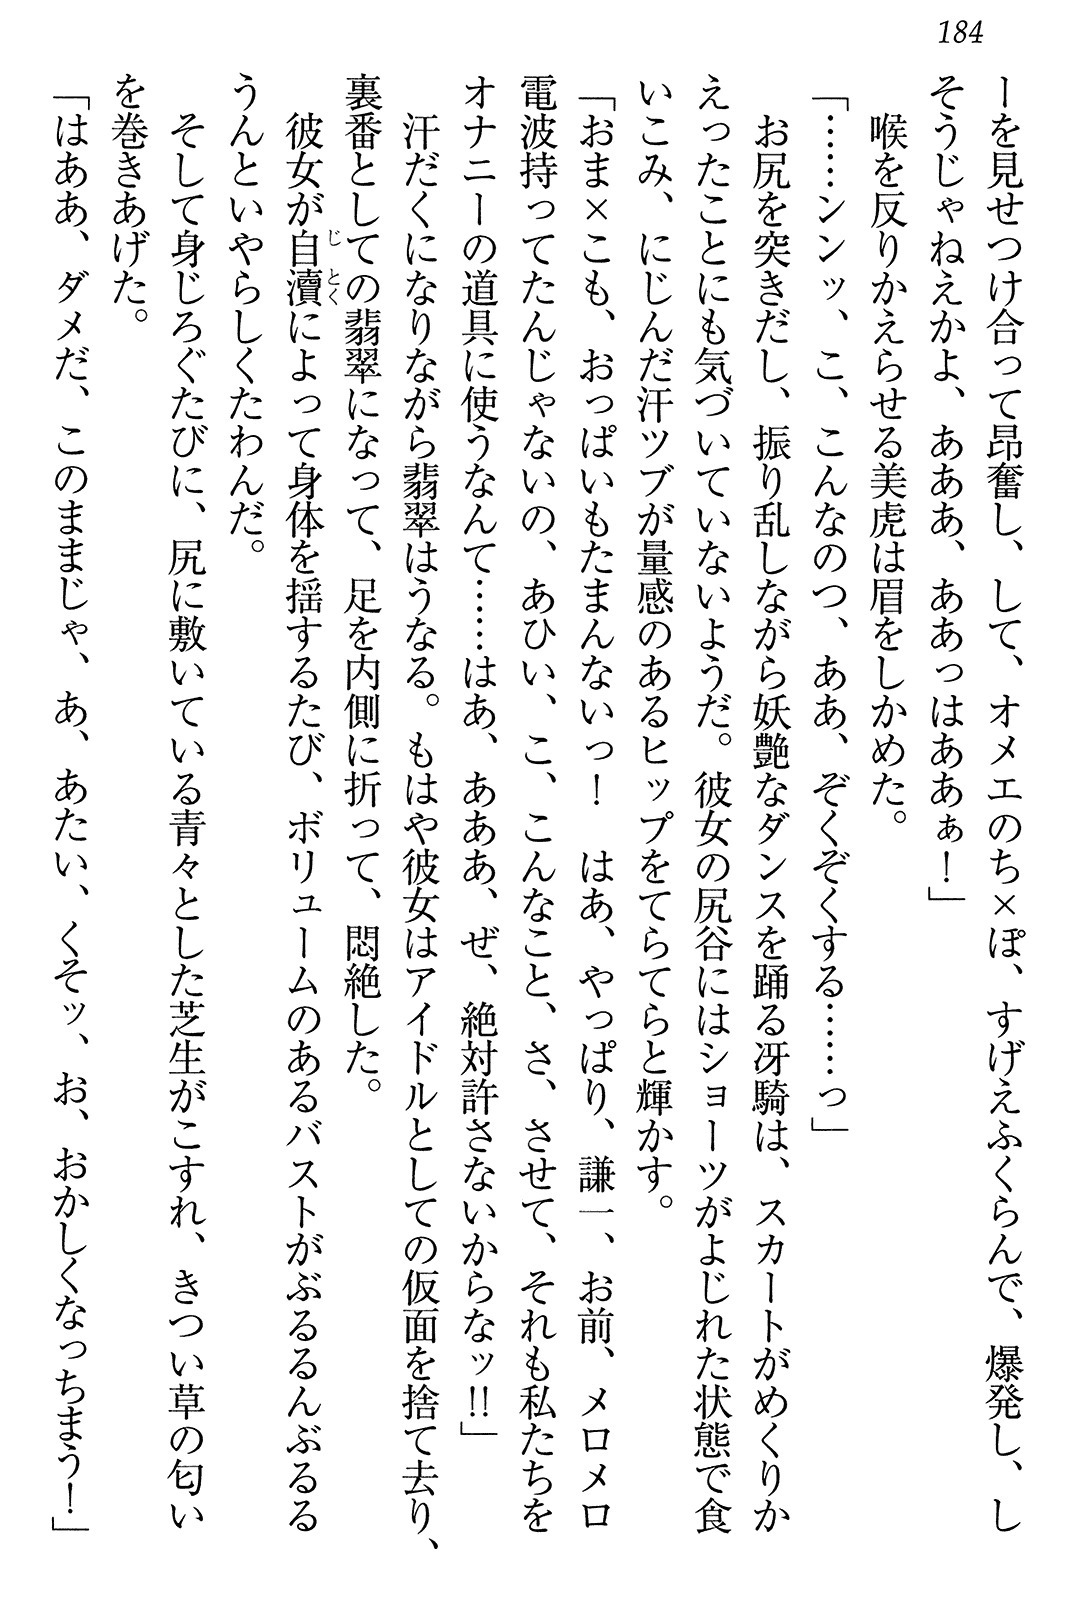 184
ーを見せつけ合って昂奮し、して、オメエのち×ぽ、すげえふくらんで、爆発し、し
そうじゃねえかよ、あああ、ああっはああぁ！」
喉を反りかえらせる美虎は眉をしかめた。
「……ンンッ、こ、こんなのつ、ああ、ぞくぞくする……っ」
お尻を突きだし、振り乱しながら妖艶なダンスを踊る冴騎は、スカートがめくりか
えったことにも気づいていないようだ。彼女の尻谷にはショーツがよじれた状態で食
いこみ、にじんだ汗ツブが量感のあるヒップをてらてらと輝かす。
「おま×こも、おっぱいもたまんないっ！　はあ、やっぱり、謙一、お前、メロメロ
電波持ってたんじゃないの、あひい、こ、こんなこと、さ、させて、それも私たちを
オナニーの道具に使うなんて……はあ、あああ、ぜ、絶対許さないからなッ!!」
汗だくになりながら翡翠はうなる。もはや彼女はアイドルとしての仮面を捨て去り、
裏番としての翡翠になって、足を内側に折って、悶絶した。
彼女が自瀆じとくによって身体を揺するたび、ボリュームのあるバストがぶるるんぶるる
うんといやらしくたわんだ。
そして身じろぐたびに、尻に敷いている青々とした芝生がこすれ、きつい草の匂い
を巻きあげた。
「はああ、ダメだ、このままじゃ、あ、あたい、くそッ、お、おかしくなっちまう！」